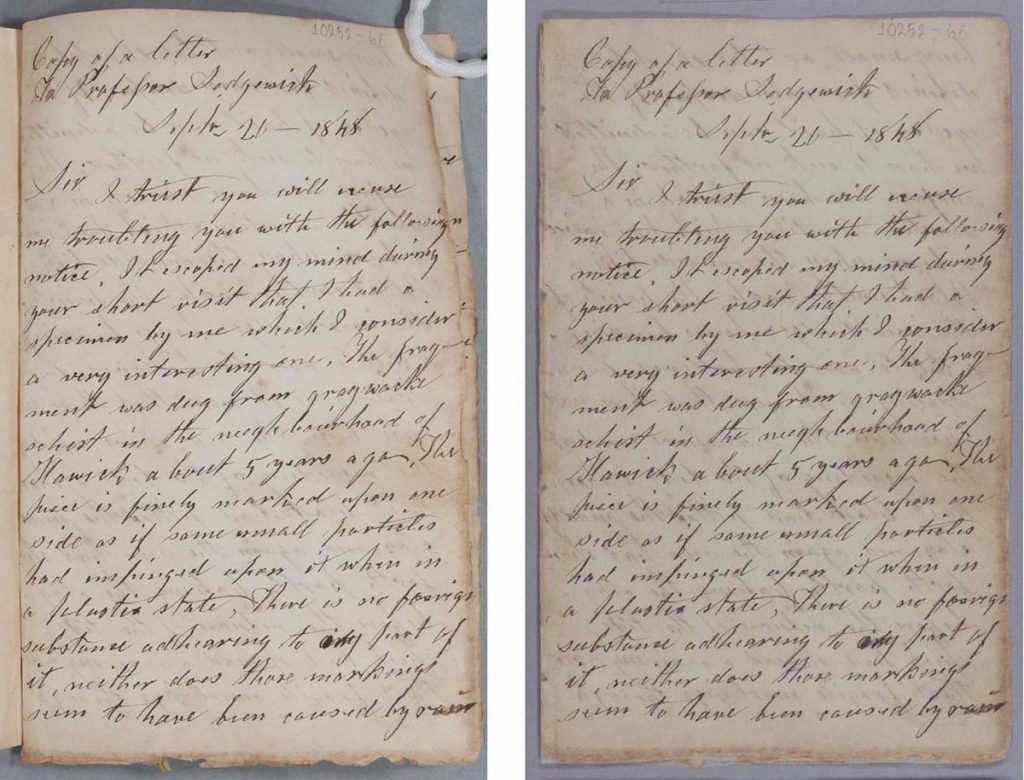 10252-65
Copy of a letter
To Professor Sedgewick
Septr 20 — 1848
Sir I trust you will excuse
me troubling you with the following
notice, It escaped my mind during
your short visit that I had a
specimen by me which I consider
a very interesting one, The frag-
ment was dug from graywacke
schist in the neighbourhood of
Hawick about 5 years ago, The
piece is finely marked upon one
side as if some small particles
had impinged upon it when in
a plastic state, There is no foreign
substance adhearing to any part of
it, neither does those markings
seem to have been caused by rain
10252-65
Copy of a letter
To Professor Sedgewick
Septr 20 — 1848
Sir I trust you will excuse
me troubling you with the following
notice, It escaped my mind during
your short visit that I had a
specimen by me which I consider
a very interesting one, The frag-
ment was dug from graywacke
schist in the neighbourhood of
Hawick about 5 years ago, The
piece is finely marked upon one
side as if some small particles
had impinged upon it when in
a plastic state, There is no foreign
substance adhearing to any part of
it, neither does those markings
seem to have been caused by rain